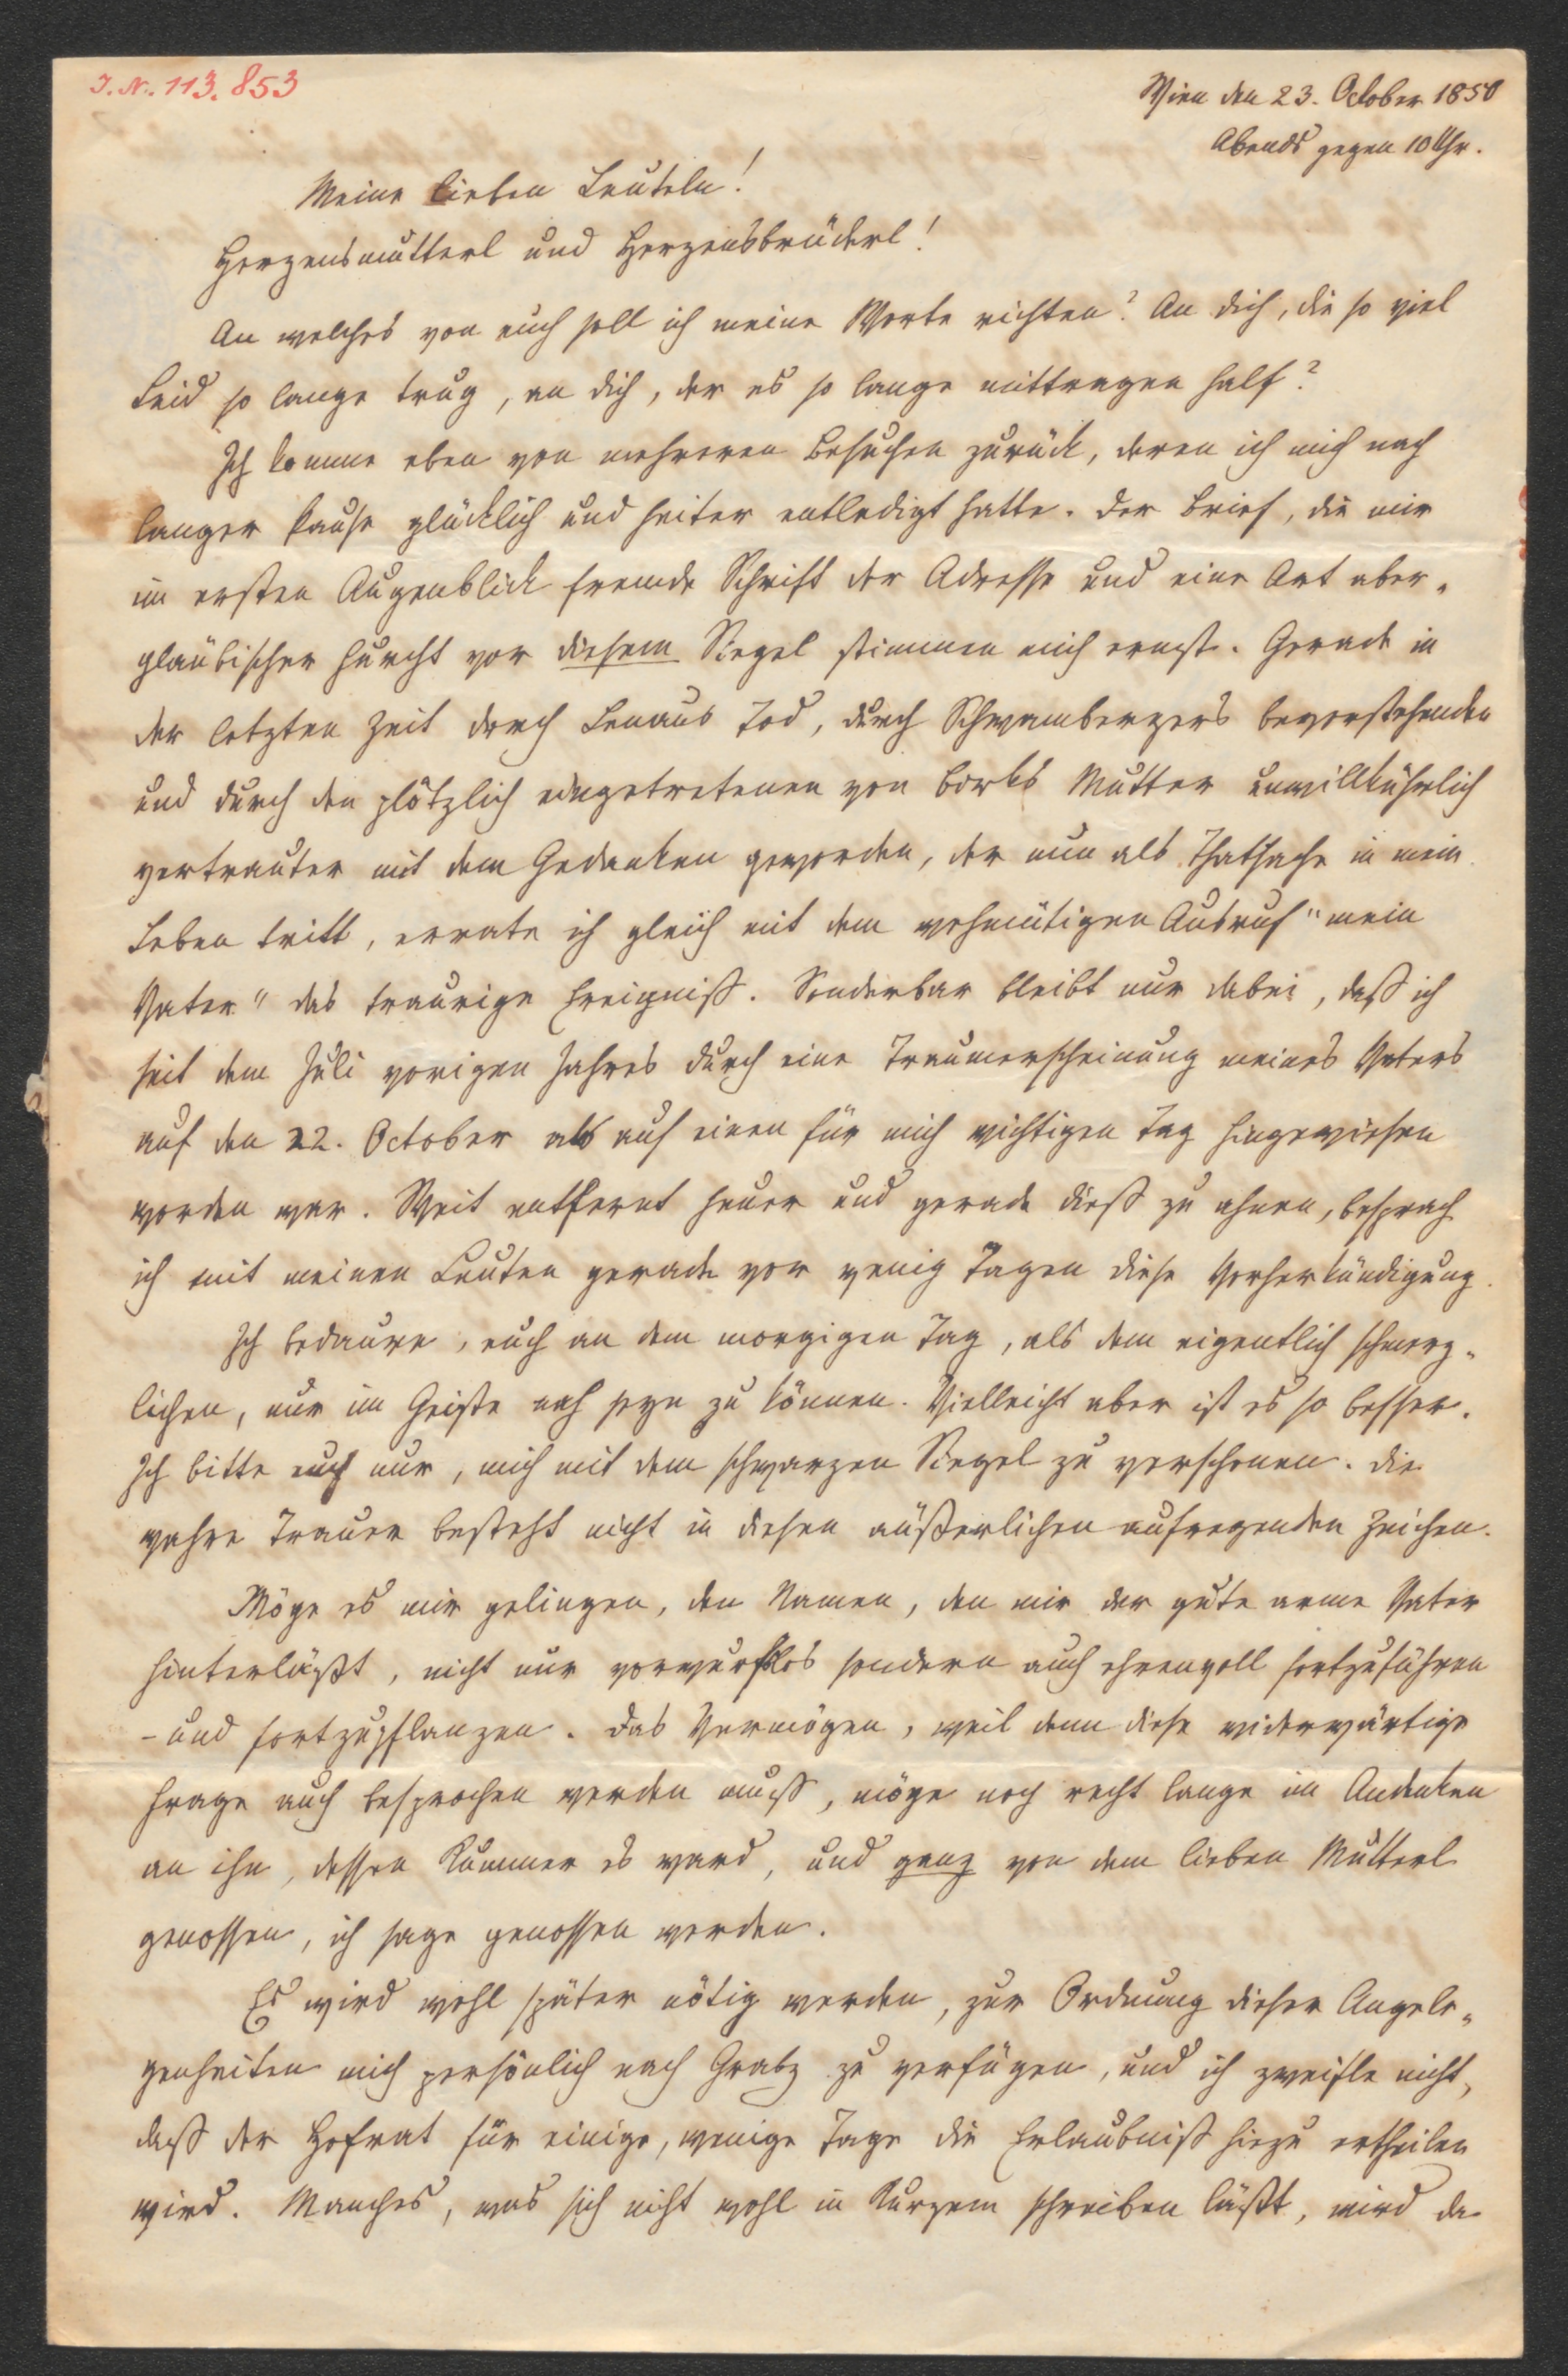 J. N. 113.853
Wien den 23. October 1850
Abends gegen 10 Uhr.
Meine lieben Leuteln!
Herzensmutterl und Herzensbrüderl!
An welches von euch soll ich meine Worte richten? An dich, die so viel
Leid so lange trug, an dich, der es so lange mittragen half?
Ich komme eben von mehreren Besuchen zurück, deren ich mich nach
langer Pause glücklich und heiter entledigt hatte. Der Brief, die mir
im ersten Augenblick fremde Schrift der Adresse und eine Art aber-
gläubischer Furcht vor diesem Siegel stimmen mich ernst. Gerade in
der letzten Zeit durch Lenaus Tod, durch Schwambergers bevorstehenden
und durch den plötzlich eingetretenen von Mutter unwillkührlich
vertrauter mit dem Gedanken geworden, der nun als Thatsache in mein
Leben tritt, errate ich gleich mit dem wehmütigen Ausruf "mein
Vater" das traurige Ereigniß. Sonderbar bleibt nur dabei, daß ich
seit dem Juli vorigen Jahres durch eine Traumerscheinung meines Vaters
auf den 22. October als auf einen für mich wichtigen Tag hingewiesen
worden war. Weit entfernt heuer und gerade dieß zu ahnen, besprach
ich mit meinen Leuten gerade vor wenig Tagen diese Vorherkündigung.
Ich bedaure, euch an dem morgigen Tag, als dem eigentlich schmerz-
lichen, nur im Geiste nah seyn zu können. Vielleicht aber ist es so besser.
Ich bitte euch nur, mich mit dem schwarzen Siegel zu verschonen. Die
wahre Trauer besteht nicht in diesen äußerlichen aufregenden Zeichen.
Möge es mir gelingen, den Namen, den mir der gute arme Vater
hinterläßt, nicht nur vorwurfslos sondern auch ehrenvoll fortzuführen
- und fortzupflanzen. Das Vermögen, weil denn diese widerwärtige
Frage auch besprochen werden muß, möge noch recht lange im Andenken
an ihn, dessen Kummer es ward, und ganz von dem lieben Mutterl
genossen, ich sage genossen werden.
Es wird wohl später nötig werden, zur Ordnung dieser Angele-
genheiten mich persönlich nach Gratz zu verfügen, und ich zweifle nicht,
daß der Hofrat für einige, wenige Tage die Erlaubniß hiezu ertheilen
wird. Manches, was sich nicht wohl in Kurzem schreiben läßt, wird da